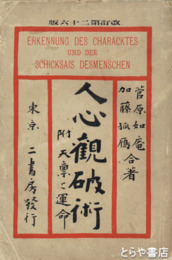 改訂第二十六版
ERKENNUNG DES CHARACKTES
UND DER
SCHICKSAIS DESMENSCHEN
菅原如庵
加藤孤鴈 合著
人心観破術
附 天稟と運命
東京 二書房發行
とらや書店